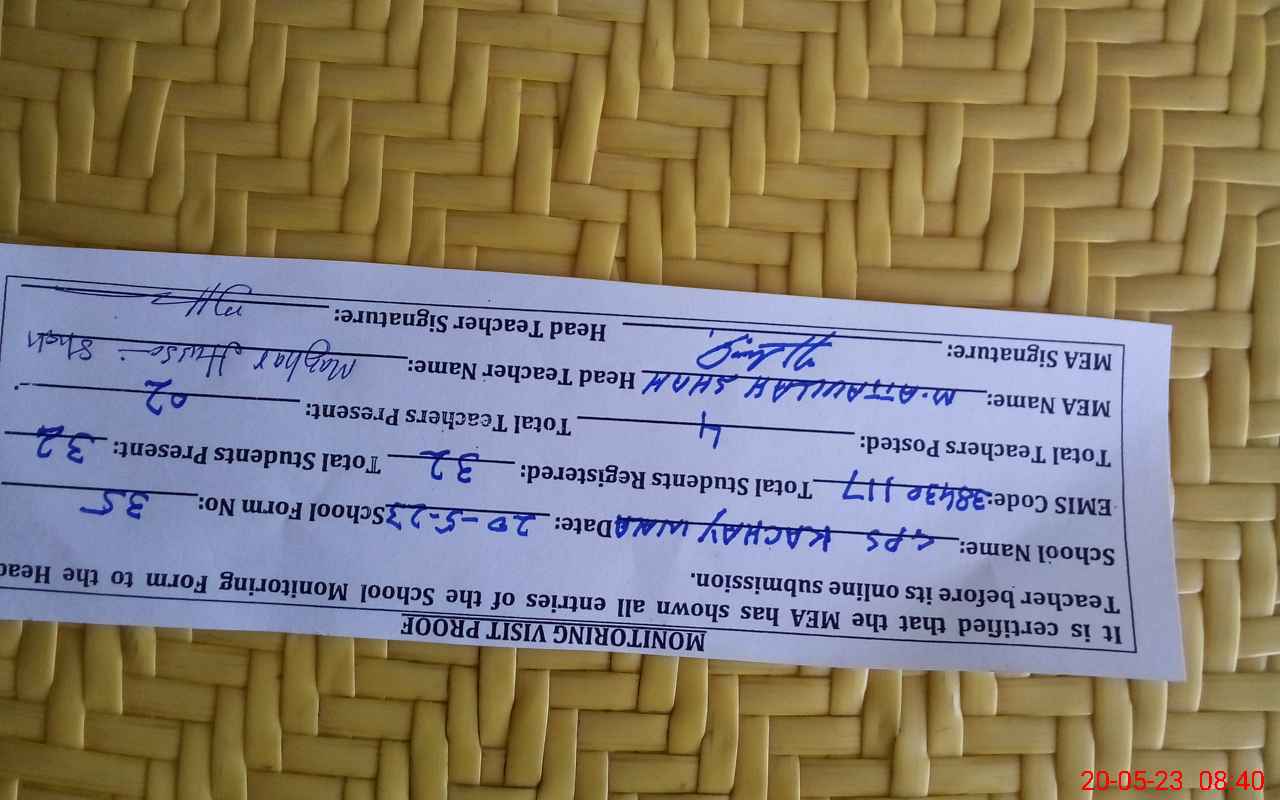 MONITORING VISIT PROOF
It is certified that the MEA has shown all entries of the School Monitoring Form to the Head
Teacher before its online submission.
School Name: GPS KACHAY WALA Date: 20-5-23 School Form No: 35
EMIS Code: 38430117 Total Students Registered: 32 Total Students Present: 32
Total Teachers Posted: 4 Total Teachers Present: 02
MEA Name: M. ATTAULLAH SHAH Head Teacher Name: Mazhar Hussain Shah
MEA Signature: Head Teacher Signature:
20-05-23 08:40